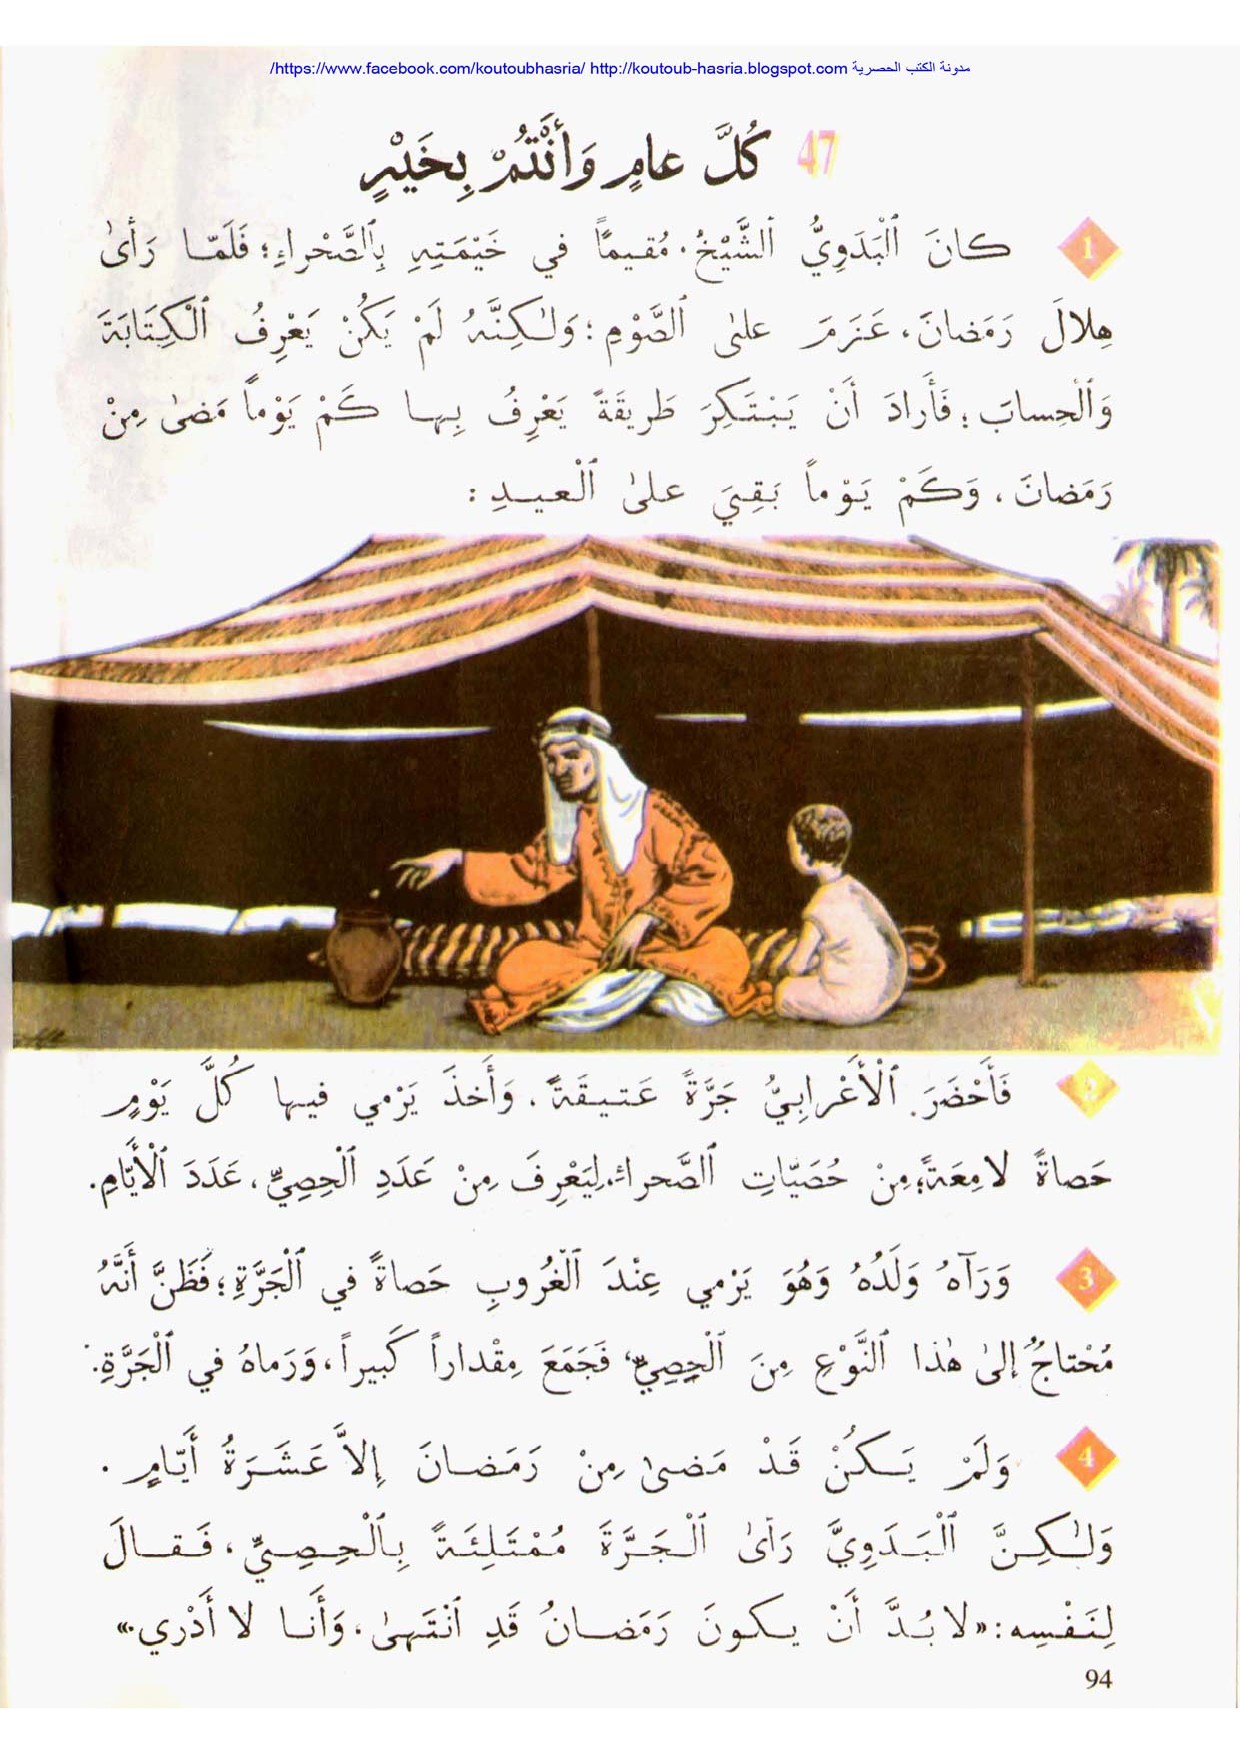 https://www.facebook.com/koutoubhasria/ http://koutoub-hasria.blogspot.com مدونة الكتب الحصرية/
47 كُلَّ عامٍ وَأَنْتُمْ بِخَيْرٍ
1 كانَ ٱلْبَدَوِيُّ ٱلشَّيْخُ. مُقيماً في خَيْمَتِهِ بِٱلصَّحْراءِ؛ فَلَمّا رَأىٰ
هِلالَ رَمَضانَ، عَزَمَ علىٰ ٱلصَّوْمِ؛ وَلٰكِنَّهُ لَمْ يَكُنْ يَعْرِفُ ٱلْكِتَابَةَ
وَٱلْحِسابَ؛ فَأَرادَ أَنْ يَبْتَكِرَ طَريقَةً يَعْرِفُ بِها كَمْ يَوْماً مَضىٰ مِنْ
رَمَضانَ، وَكَمْ يَوْماً بَقِيَ علىٰ ٱلْعيدِ:
2 فَأَحْضَرَ ٱلْأَعْرابِيُّ جَرَّةً عَتيقَةً، وَأَخذَ يَرْمي فيها كُلَّ يَوْمٍ
حَصاةً لامِعَةً؛ مِنْ حُصَيّاتِ ٱلصَّحراءِ، لِيَعْرِفَ مِنْ عَدَدِ ٱلْحِصِيِّ، عَدَدَ ٱلْأَيّامِ.
3 وَرَآهُ وَلَدُهُ وَهُوَ يَرْمي عِنْدَ ٱلْغُروبِ حَصاةً في ٱلْجَرَّةِ؛ فَظَنَّ أَنَّهُ
مُحْتاجٌ إلىٰ هٰذا ٱلنَّوْعِ مِنَ ٱلْحِصِيِّ، فَجَمَعَ مِقْداراً كَبيراً، وَرَماهُ في ٱلْجَرَّةِ.
4 وَلَمْ يَكُنْ قَدْ مَضىٰ مِنْ رَمَضانَ إلاَّ عَشَرَةُ أَيّامٍ.
وَلٰكِنَّ ٱلْبَدَوِيَّ رَأىٰ ٱلْجَرَّةَ مُمْتَلِئَةً بِٱلْحِصِيِّ، فَقالَ
لِنَفْسِهِ: «لا بُدَّ أَنْ يكونَ رَمَضانُ قَدِ ٱنْتَهىٰ، وَأَنا لا أَدْري.»
94